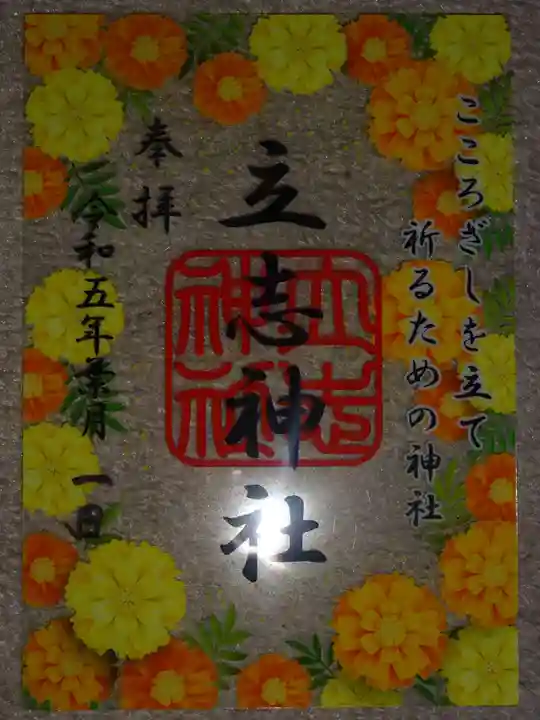 こころざしを立て
祈るための神社
立志神社
立志神社
奉拝
令和五年葉月一日